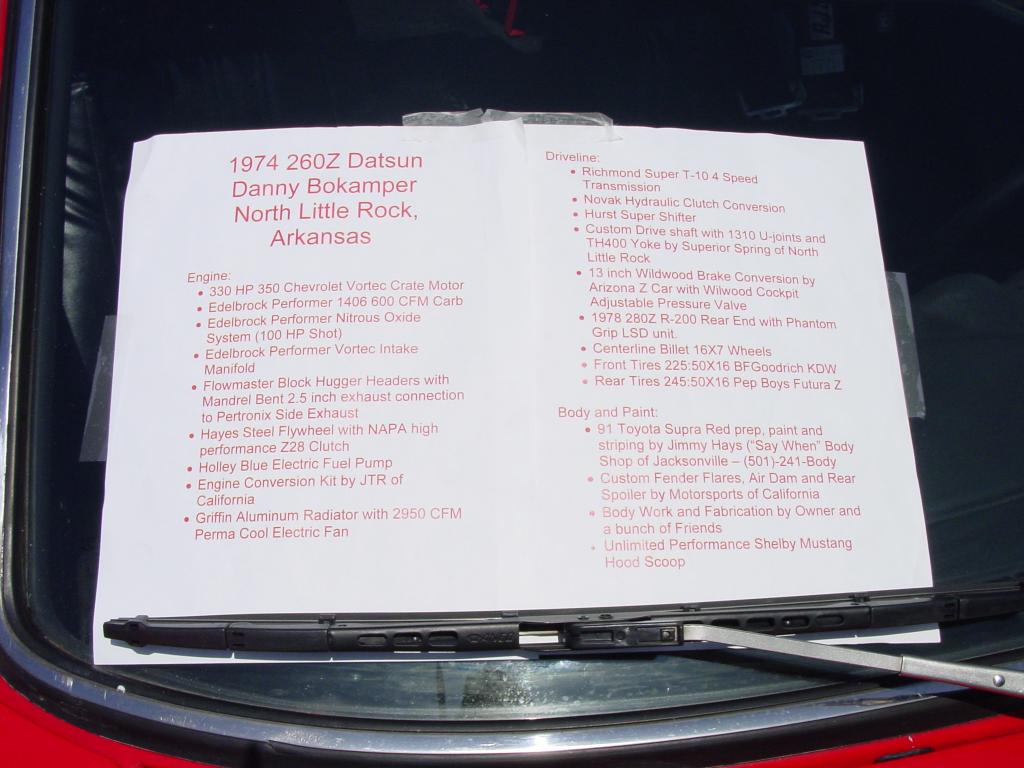 1974 260Z Datsun
Danny Bokamper
North Little Rock,
Arkansas
Engine:
• 330 HP 350 Chevrolet Vortec Crate Motor
• Edelbrock Performer 1406 600 CFM Carb
• Edelbrock Performer Nitrous Oxide
System (100 HP Shot)
• Edelbrock Performer Vortec Intake
Manifold
• Flowmaster Block Hugger Headers with
Mandrel Bent 2.5 inch exhaust connection
to Pertronix Side Exhaust
• Hayes Steel Flywheel with NAPA high
performance Z28 Clutch
• Holley Blue Electric Fuel Pump
• Engine Conversion Kit by JTR of
California
• Griffin Aluminum Radiator with 2950 CFM
Perma Cool Electric Fan
Driveline:
• Richmond Super T-10 4 Speed
Transmission
• Novak Hydraulic Clutch Conversion
• Hurst Super Shifter
• Custom Drive shaft with 1310 U-joints and
TH400 Yoke by Superior Spring of North
Little Rock
• 13 inch Wildwood Brake Conversion by
Arizona Z Car with Wilwood Cockpit
Adjustable Pressure Valve
• 1978 280Z R-200 Rear End with Phantom
Grip LSD unit.
• Centerline Billet 16X7 Wheels
• Front Tires 225:50X16 BFGoodrich KDW
• Rear Tires 245:50X16 Pep Boys Futura Z
Body and Paint:
• 91 Toyota Supra Red prep, paint and
striping by Jimmy Hays ("Say When" Body
Shop of Jacksonville – (501)-241-Body
• Custom Fender Flares, Air Dam and Rear
Spoiler by Motorsports of California
• Body Work and Fabrication by Owner and
a bunch of Friends
• Unlimited Performance Shelby Mustang
Hood Scoop